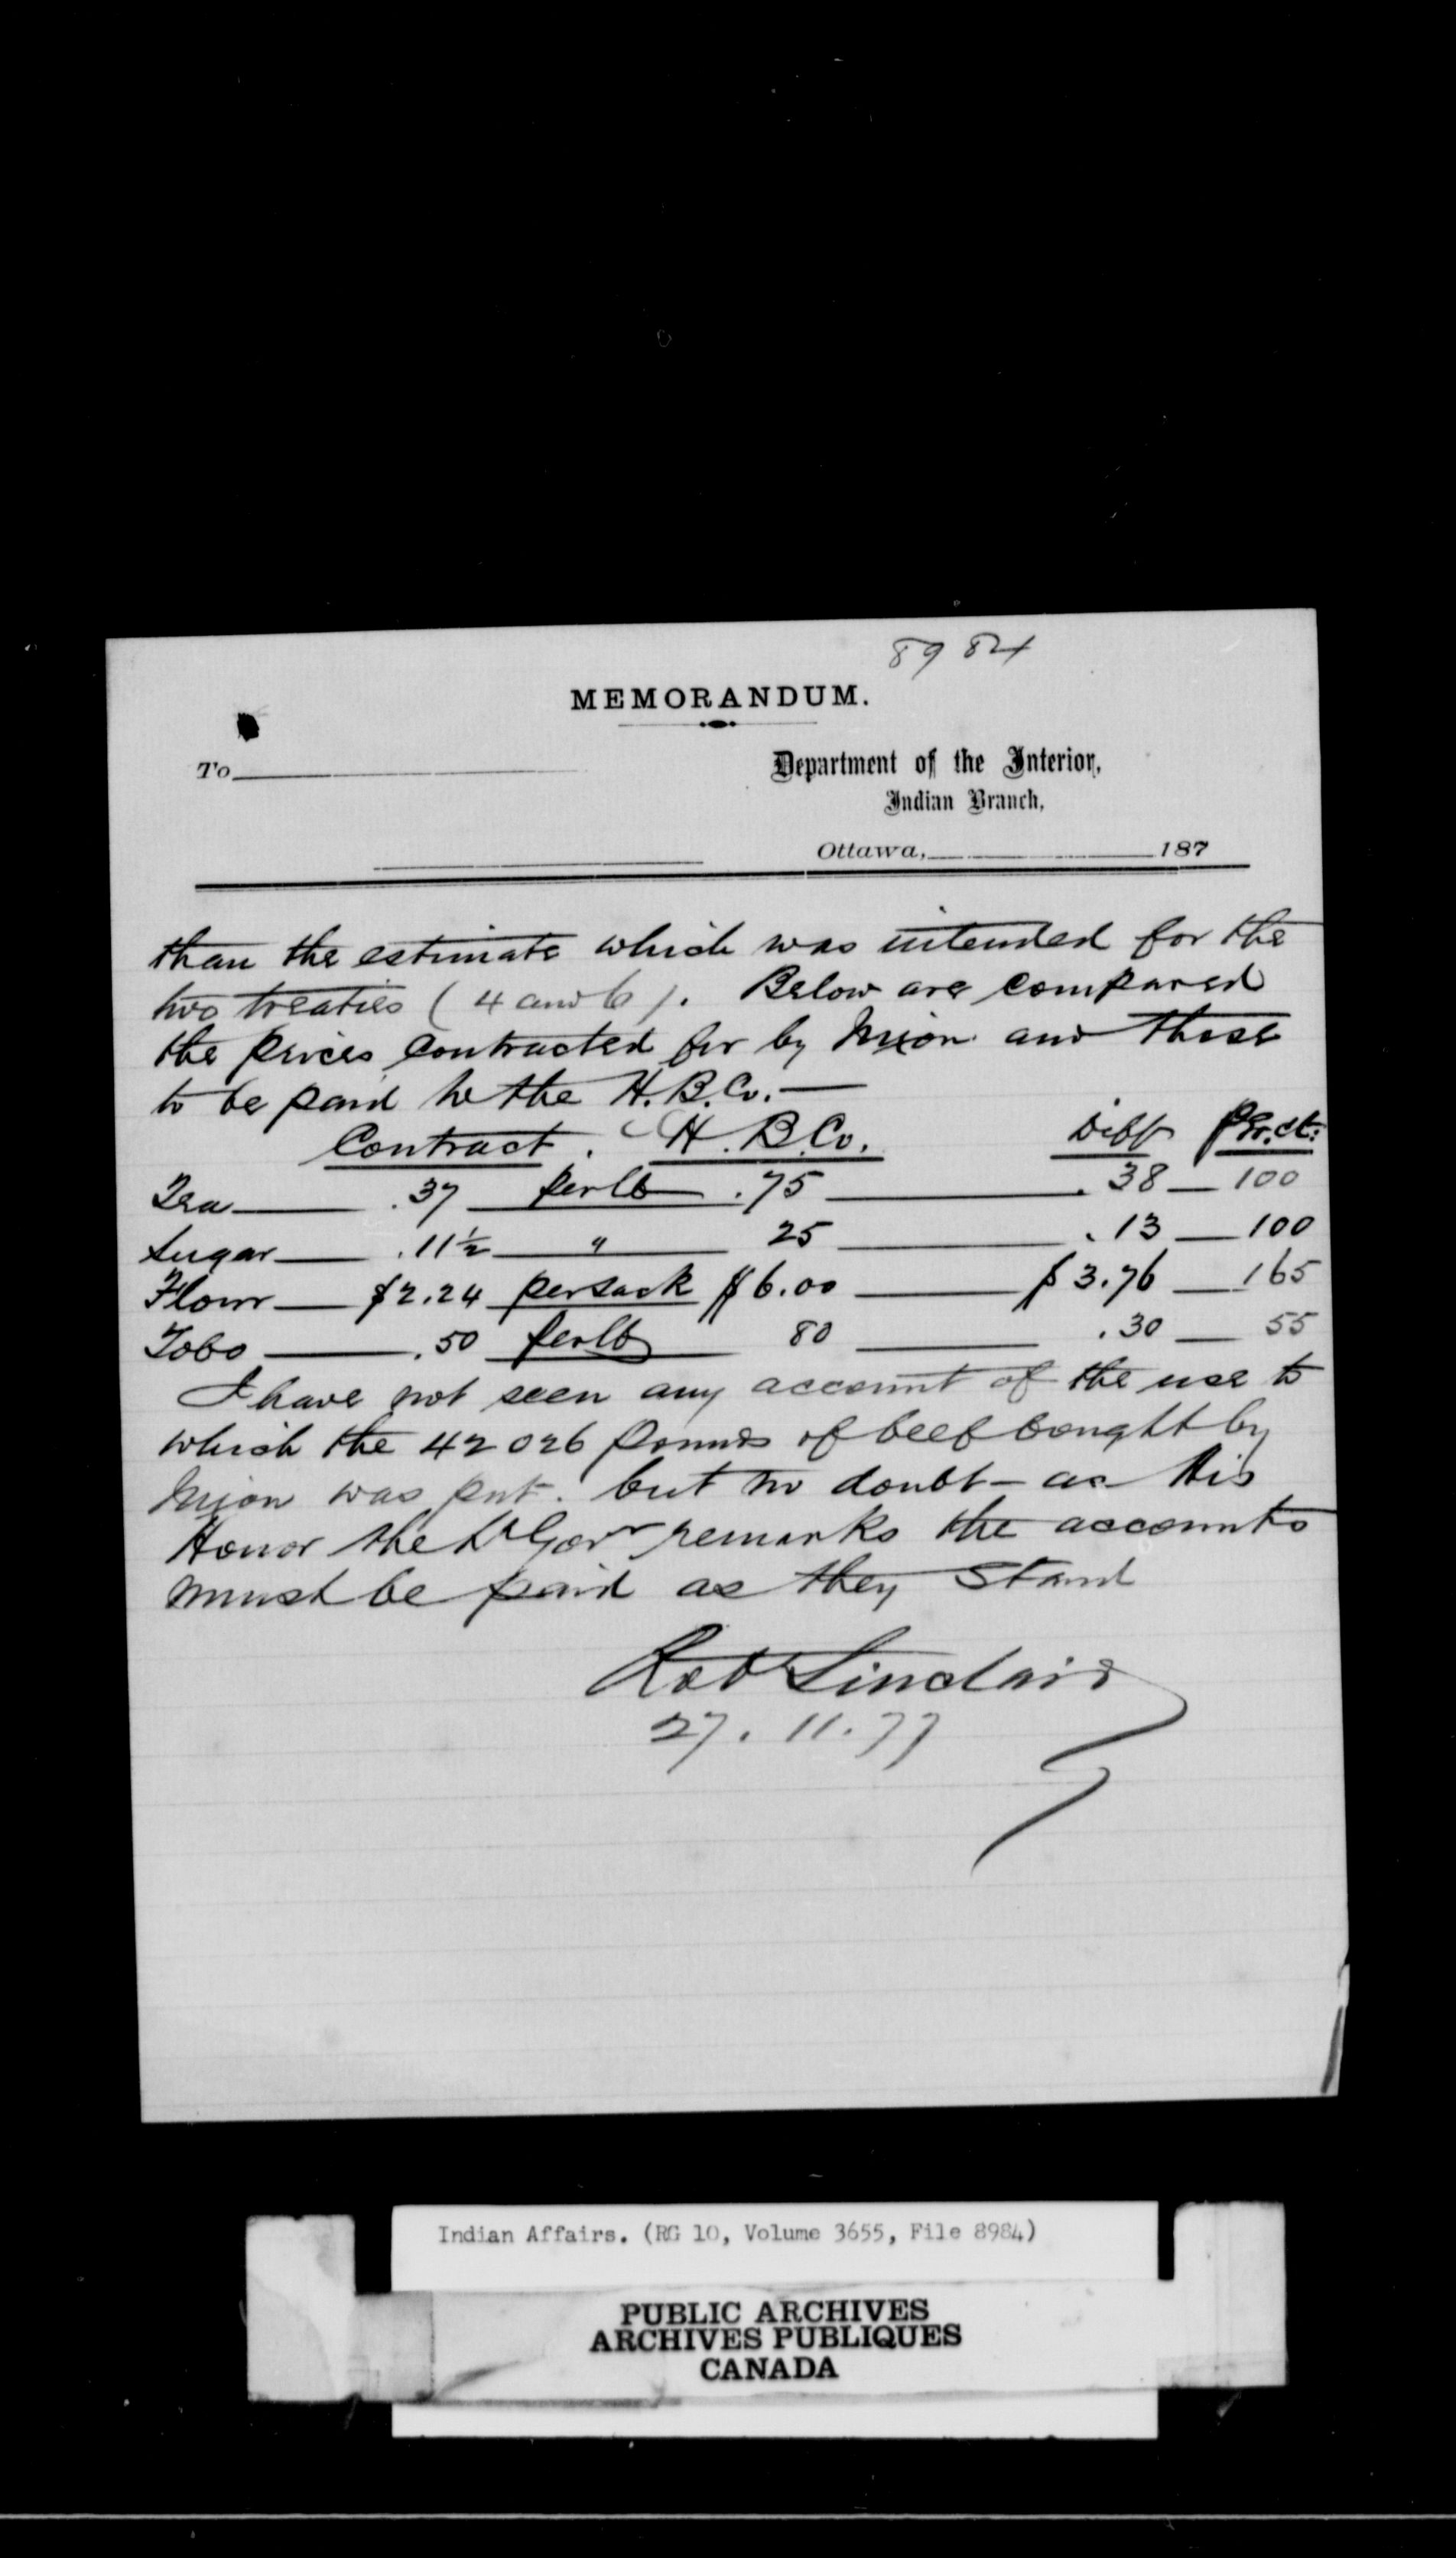 8984
MEMORANDUM.
To
Department of the Interior,
Indian Branch,
Ottawa, 187
than the estimate which was intended for the
two treaties (4 and 6). Below are compared
the prices contracted for by Nixon and those
to be paid to the H.B.Co. —
Contract. H.B.Co. Diff Pr.ct:
Tea — .37 per lb .75 — .38 — 100
Sugar — .11½ " 25 — .13 — 100
Flour — $2.24 per sack $6.00 — $3.76 — 165
Tobo — .50 per lb 80 — .30 — 55
I have not seen any account of the use to
which the 42026 pounds of beef bought by
Nixon was put. but no doubt – as His
Honor the Lt Govr remarks the accounts
must be paid as they stand
Robt Sinclair
27.11.77
Indian Affairs. (RG 10, Volume 3655, File 8984)
PUBLIC ARCHIVES
ARCHIVES PUBLIQUES
CANADA